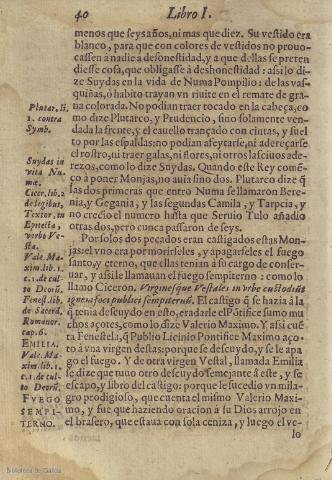 40 Libro I.
menos que seys años, ni mas que diez. Su vestido era
blanco, para que con colores de vestidos no prouo-
cassen à nadie a desonestidad, y a que dellas se preten
diesse cosa, que obligasse à deshonestidad: assi lo di-
ze Suydas en la vida de Numa Pompilio: de las vas-
quiñas, ò habito trayan vn riuite en el remate de grã
na colorada. No podian traer tocado en la cabeça, co
mo dize Plutarco, y Prudencio, sino solamente ven-
dada la frente, y el cauello trançado con cintas, y suel
to por las espaldas: no podian afeytarse, ni adereçarse
el rostro, ni traer galas, ni flores, ni otros lasciuos ade-
reços, como lo dize Suydas. Quando este Rey comẽ-
çò a poner Monjas, no auia sino dos. Plutarco dize q̃
las dos primeras que entro Numa se llamaron Bere-
nia, y Gegania, y las segundas Camila, y Tarpcia, y
no crecio el numero hasta que Seruio Tulo añadio
otras dos, pero cunca passaron de seys.
Por solos dos pecados eran castigadas estas Mon-
jas: el vno era por morirseles, y apagarseles el fuego
santo, y eterno, que ellas tenian à su cargo de conser-
uar, y assi le llamauan el fuego sempiterno: como lo
llamo Ciceron. Virginesque Vestales in vrbe custodiũt
ignem focs publici sempiternũ. El castigo q̃ se hazia à la
q̃ tenia descuydo en esto, era darle el Põtifice sumo mu
chos açotes, como lo dize Valerio Maximo. Y assi cuẽ
ta Fenestela, q̃ Publio Licinio Pontifice Maximo aço-
tò à vna virgen destas: porque se descuydo, y se le apa
go el fuego. Y de otra virgen Vestal, llamada Emilia
le dize que tuuo otro descuydo semejante à este, y se
escapo, y libro del castigo: porque le sucedio vn mila-
gro prodigioso, que cuenta el mismo Valerio Maxi-
mo, y fue que haziendo oracion à su Dios arrojo en
el brasero, que estaua con sola ceniza, y luego el ve-
lo
Plutar. li.
1. contra
Symb.
Suydas in
vita Nu-
mæ.
Cicer. lib. 2
de legibus,
Textor, in
Epitetis,
verbo Ve-
sta.
Vale. Ma-
xim. lib. 1.
c. 1. de cul-
tu Deorũ.
Fenest. lib.
de Sacerd.
Romanor.
cap. 6.
EMILIA.
Vale. Ma-
xim. lib. 1.
c. 1. de cul-
tu Deorũ.
FVEGO
SEMPI-
TERNO.
Biblioteca de Galicia